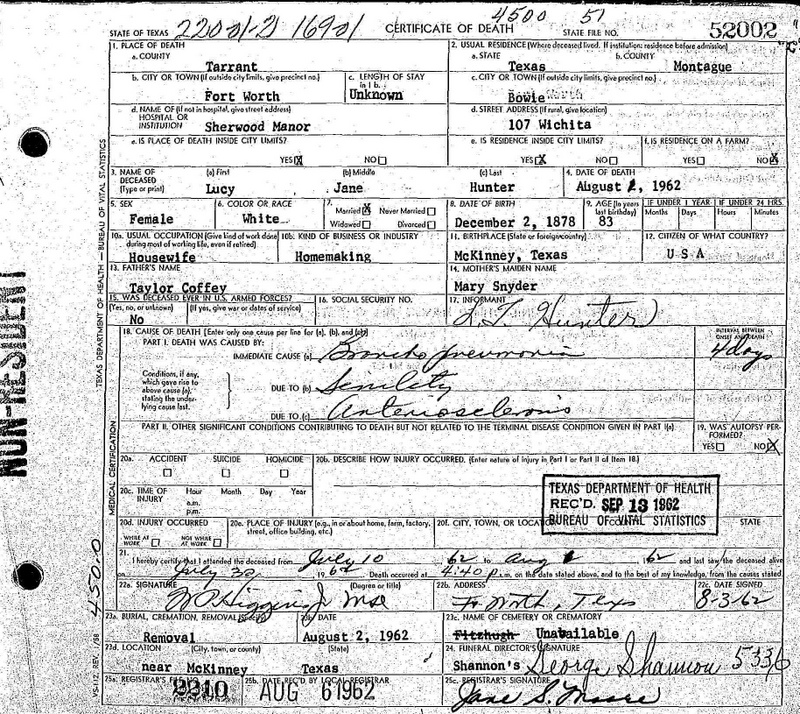 4500 51
STATE OF TEXAS 2200/-2 1690/ CERTIFICATE OF DEATH STATE FILE NO. 52002
1. PLACE OF DEATH 2. USUAL RESIDENCE (Where deceased lived. If institution: residence before admission)
a. COUNTY a. STATE b. COUNTY
Tarrant Texas Montague
b. CITY OR TOWN (If outside city limits, give precinct no.) c. LENGTH OF STAY in 1 b. c. CITY OR TOWN (If outside city limits, give precinct no.)
Fort Worth Unknown Bowie
d. NAME OF (If not in hospital, give street address) HOSPITAL OR INSTITUTION d. STREET ADDRESS (If rural, give location)
Sherwood Manor 107 Wichita
e. IS PLACE OF DEATH INSIDE CITY LIMITS? e. IS RESIDENCE INSIDE CITY LIMITS? f. IS RESIDENCE ON A FARM?
YES X NO YES X NO YES NO X
3. NAME OF DECEASED (Type or print) (a) First (b) Middle (c) Last 4. DATE OF DEATH
Lucy Jane Hunter August 1, 1962
5. SEX 6. COLOR OR RACE 7. Married X Never Married Widowed Divorced 8. DATE OF BIRTH 9. AGE (In years last birthday) IF UNDER 1 YEAR Months Days IF UNDER 24 HRS. Hours Minutes
Female White December 2, 1878 83
10a. USUAL OCCUPATION (Give kind of work done during most of working life, even if retired) 10b. KIND OF BUSINESS OR INDUSTRY 11. BIRTHPLACE (State or foreign country) 12. CITIZEN OF WHAT COUNTRY?
Housewife Homemaking McKinney, Texas U S A
13. FATHER'S NAME 14. MOTHER'S MAIDEN NAME
Taylor Coffey Mary Snyder
15. WAS DECEASED EVER IN U.S. ARMED FORCES? 16. SOCIAL SECURITY NO. 17. INFORMANT
(Yes, no, or unknown) (If yes, give war or dates of service)
No L.T. Hunter
18. CAUSE OF DEATH [Enter only one cause per line for (a), (b), and (c)] INTERVAL BETWEEN ONSET AND DEATH
PART I. DEATH WAS CAUSED BY:
IMMEDIATE CAUSE (a) Broncho pneumonia 4 days
Conditions, if any, which gave rise to above cause (a), stating the underlying cause last.
DUE TO (b) Senility
DUE TO (c) Arteriosclerosis
PART II. OTHER SIGNIFICANT CONDITIONS CONTRIBUTING TO DEATH BUT NOT RELATED TO THE TERMINAL DISEASE CONDITION GIVEN IN PART I(a) 19. WAS AUTOPSY PERFORMED?
YES NO X
20a. ACCIDENT SUICIDE HOMICIDE 20b. DESCRIBE HOW INJURY OCCURRED. (Enter nature of injury in Part I or Part II of Item 18.)
20c. TIME OF INJURY Hour Month Day Year
a.m.
p.m.
TEXAS DEPARTMENT OF HEALTH
REC'D. SEP 13 1962
BUREAU OF VITAL STATISTICS
20d. INJURY OCCURRED 20e. PLACE OF INJURY (e.g., in or about home, farm, factory, street, office building, etc.) 20f. CITY, TOWN, OR LOCATION STATE
WHILE AT WORK NOT WHILE AT WORK
21. I hereby certify that I attended the deceased from July 10 62 to Aug 62 and last saw the deceased alive
on July 1962 Death occurred at 4:40 p.m. on the date stated above, and to the best of my knowledge, from the causes stated.
22a. SIGNATURE (Degree or title) 22b. ADDRESS 22c. DATE SIGNED
W P Higgins Jr Ft Worth, Texas 8-3-62
23a. BURIAL, CREMATION, REMOVAL 23b. DATE 23c. NAME OF CEMETERY OR CREMATORY
Removal August 2, 1962 Fitzhugh Unavailable
23d. LOCATION (City, town, or county) (State) 24. FUNERAL DIRECTOR'S SIGNATURE
near McKinney Texas Shannon's George Shannon 5336
25a. REGISTRAR'S FILE NO. 25b. DATE REC'D BY LOCAL REGISTRAR 25c. REGISTRAR'S SIGNATURE
2210 AUG 6 1962 Jane S. Moore
TEXAS DEPARTMENT OF HEALTH — BUREAU OF VITAL STATISTICS
MEDICAL CERTIFICATION
NON-RESIDENT
4500
VS-112, REV. 1/58